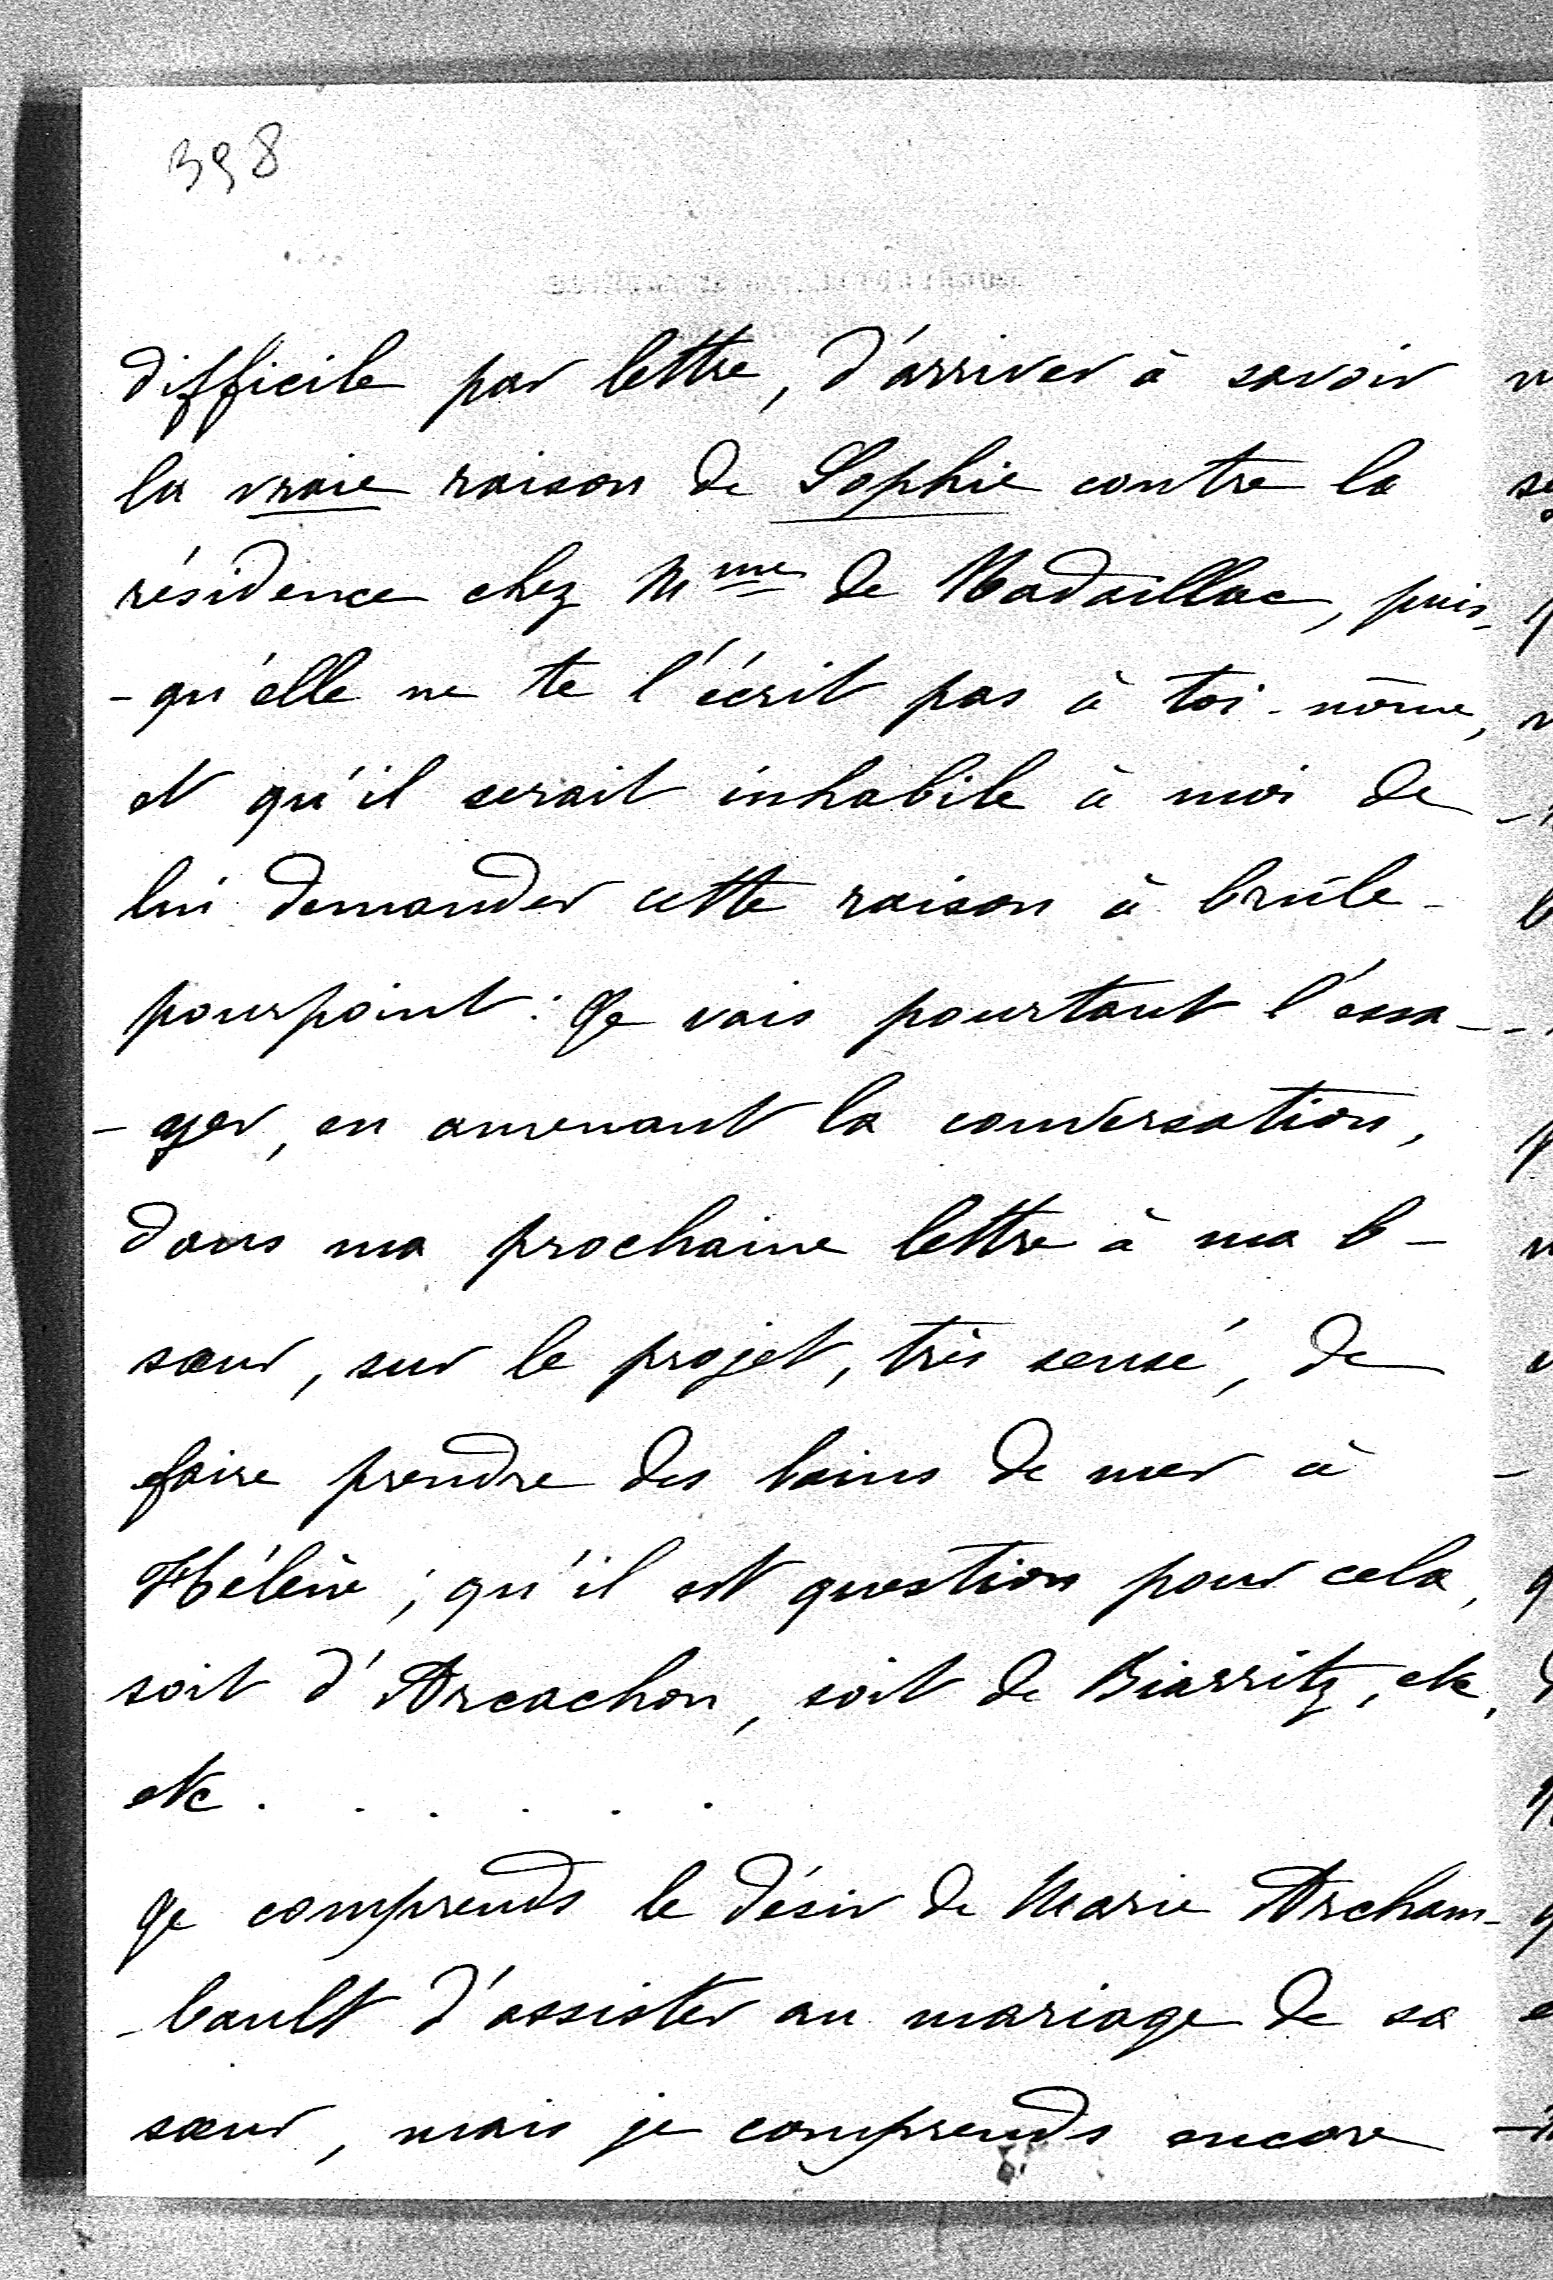 398
difficile par lettre, d'arriver à savoir
la vraie raison de Sophie contre la
résidence chez Mme de Nadaillac, puis-
-qu'elle ne te l'écrit pas à toi-même,
et qu'il serait inhabile à moi de
lui demander cette raison à brûle-
pourpoint : Je vais pourtant l'essa-
-yer, en amenant la conversation,
dans ma prochaine lettre à ma b-
sœur, sur le projet, très sensé, de
faire prendre des bains de mer à
Hélène ; qu'il est question pour cela,
soit d'Arcachon, soit de Biarritz, etc,
etc . . . . . .
Je comprends le désir de Marie Archam-
-bault d'assister au mariage de sa
sœur, mais je comprends encore